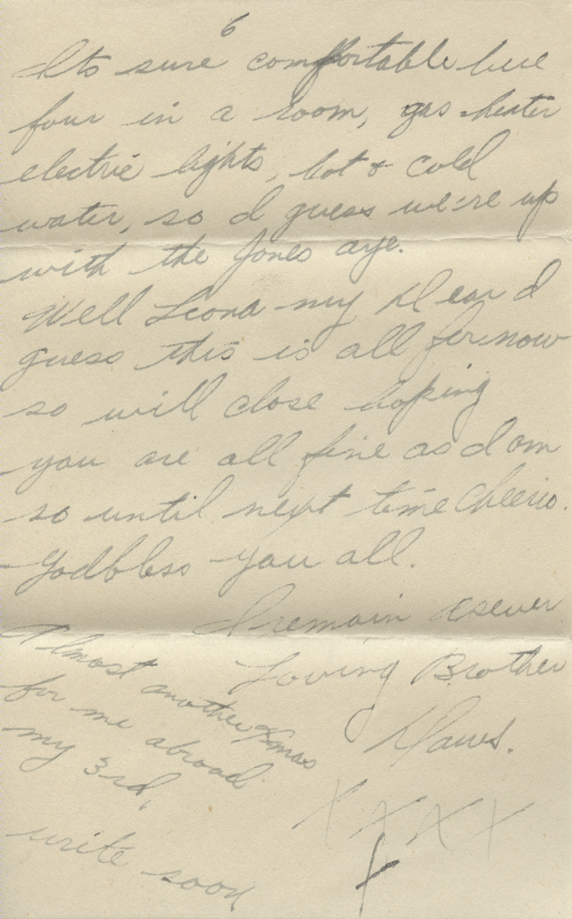 6
Its sure comfortable here
four in a room, gas heater
electric lights, hot & cold
water, so I guess we're up
with the Jones aye.
Well Leona my Dear I
guess this is all for now
so will close hoping
you are all fine as I am
so until next time Cheerio.
Godbless you all.
I remain as ever
Loving Brother
XXXX
X
Almost another Xmas
for me abroad
my 3rd,
write soon